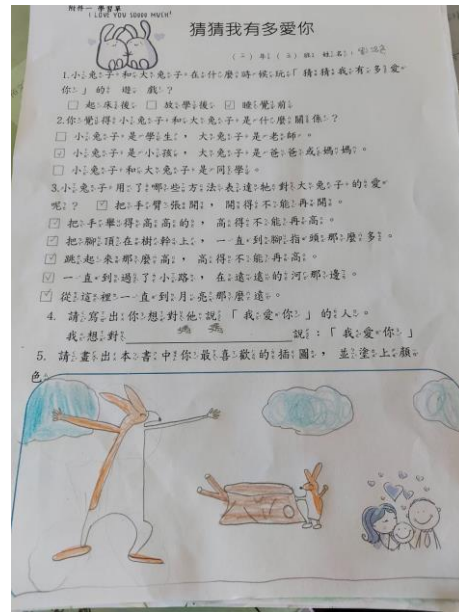 附件一 學習單
I LOVE YOU SOOOO MUCH!
猜猜我有多愛你
（二）年（三）班 姓名：
1.小兔子和大兔子在什麼時候玩「猜猜我有多愛
你」的遊戲？
□ 起床後 □ 放學後 ☑ 睡覺前
2.你覺得小兔子和大兔子是什麼關係？
□ 小兔子是學生，大兔子是老師。
☑ 小兔子是小孩，大兔子是爸爸或媽媽。
□ 小兔子和大兔子是同學。
3.小兔子用了哪些方法表達牠對大兔子的愛
呢？ ☑ 把手臂張開，開得不能再開。
☑ 把手舉得高高的，高得不能再高。
☑ 把腳頂在樹幹上，一直到腳指頭那麼多。
☑ 跳起來那麼高，高得不能再高。
☑ 一直到過了小路，在遠遠的河那邊。
☑ 從這裡一直到月亮那麼遠。
4. 請寫出你想對他說「我愛你」的人。
我想對媽媽說：「我愛你」
5. 請畫出本書中你最喜歡的插圖，並塗上顏
色。